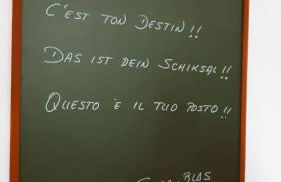 C'EST TON DESTIN!!
DAS IST DEIN SCHIKSAL!!
QUESTO È IL TUO POSTO!!
BLAS